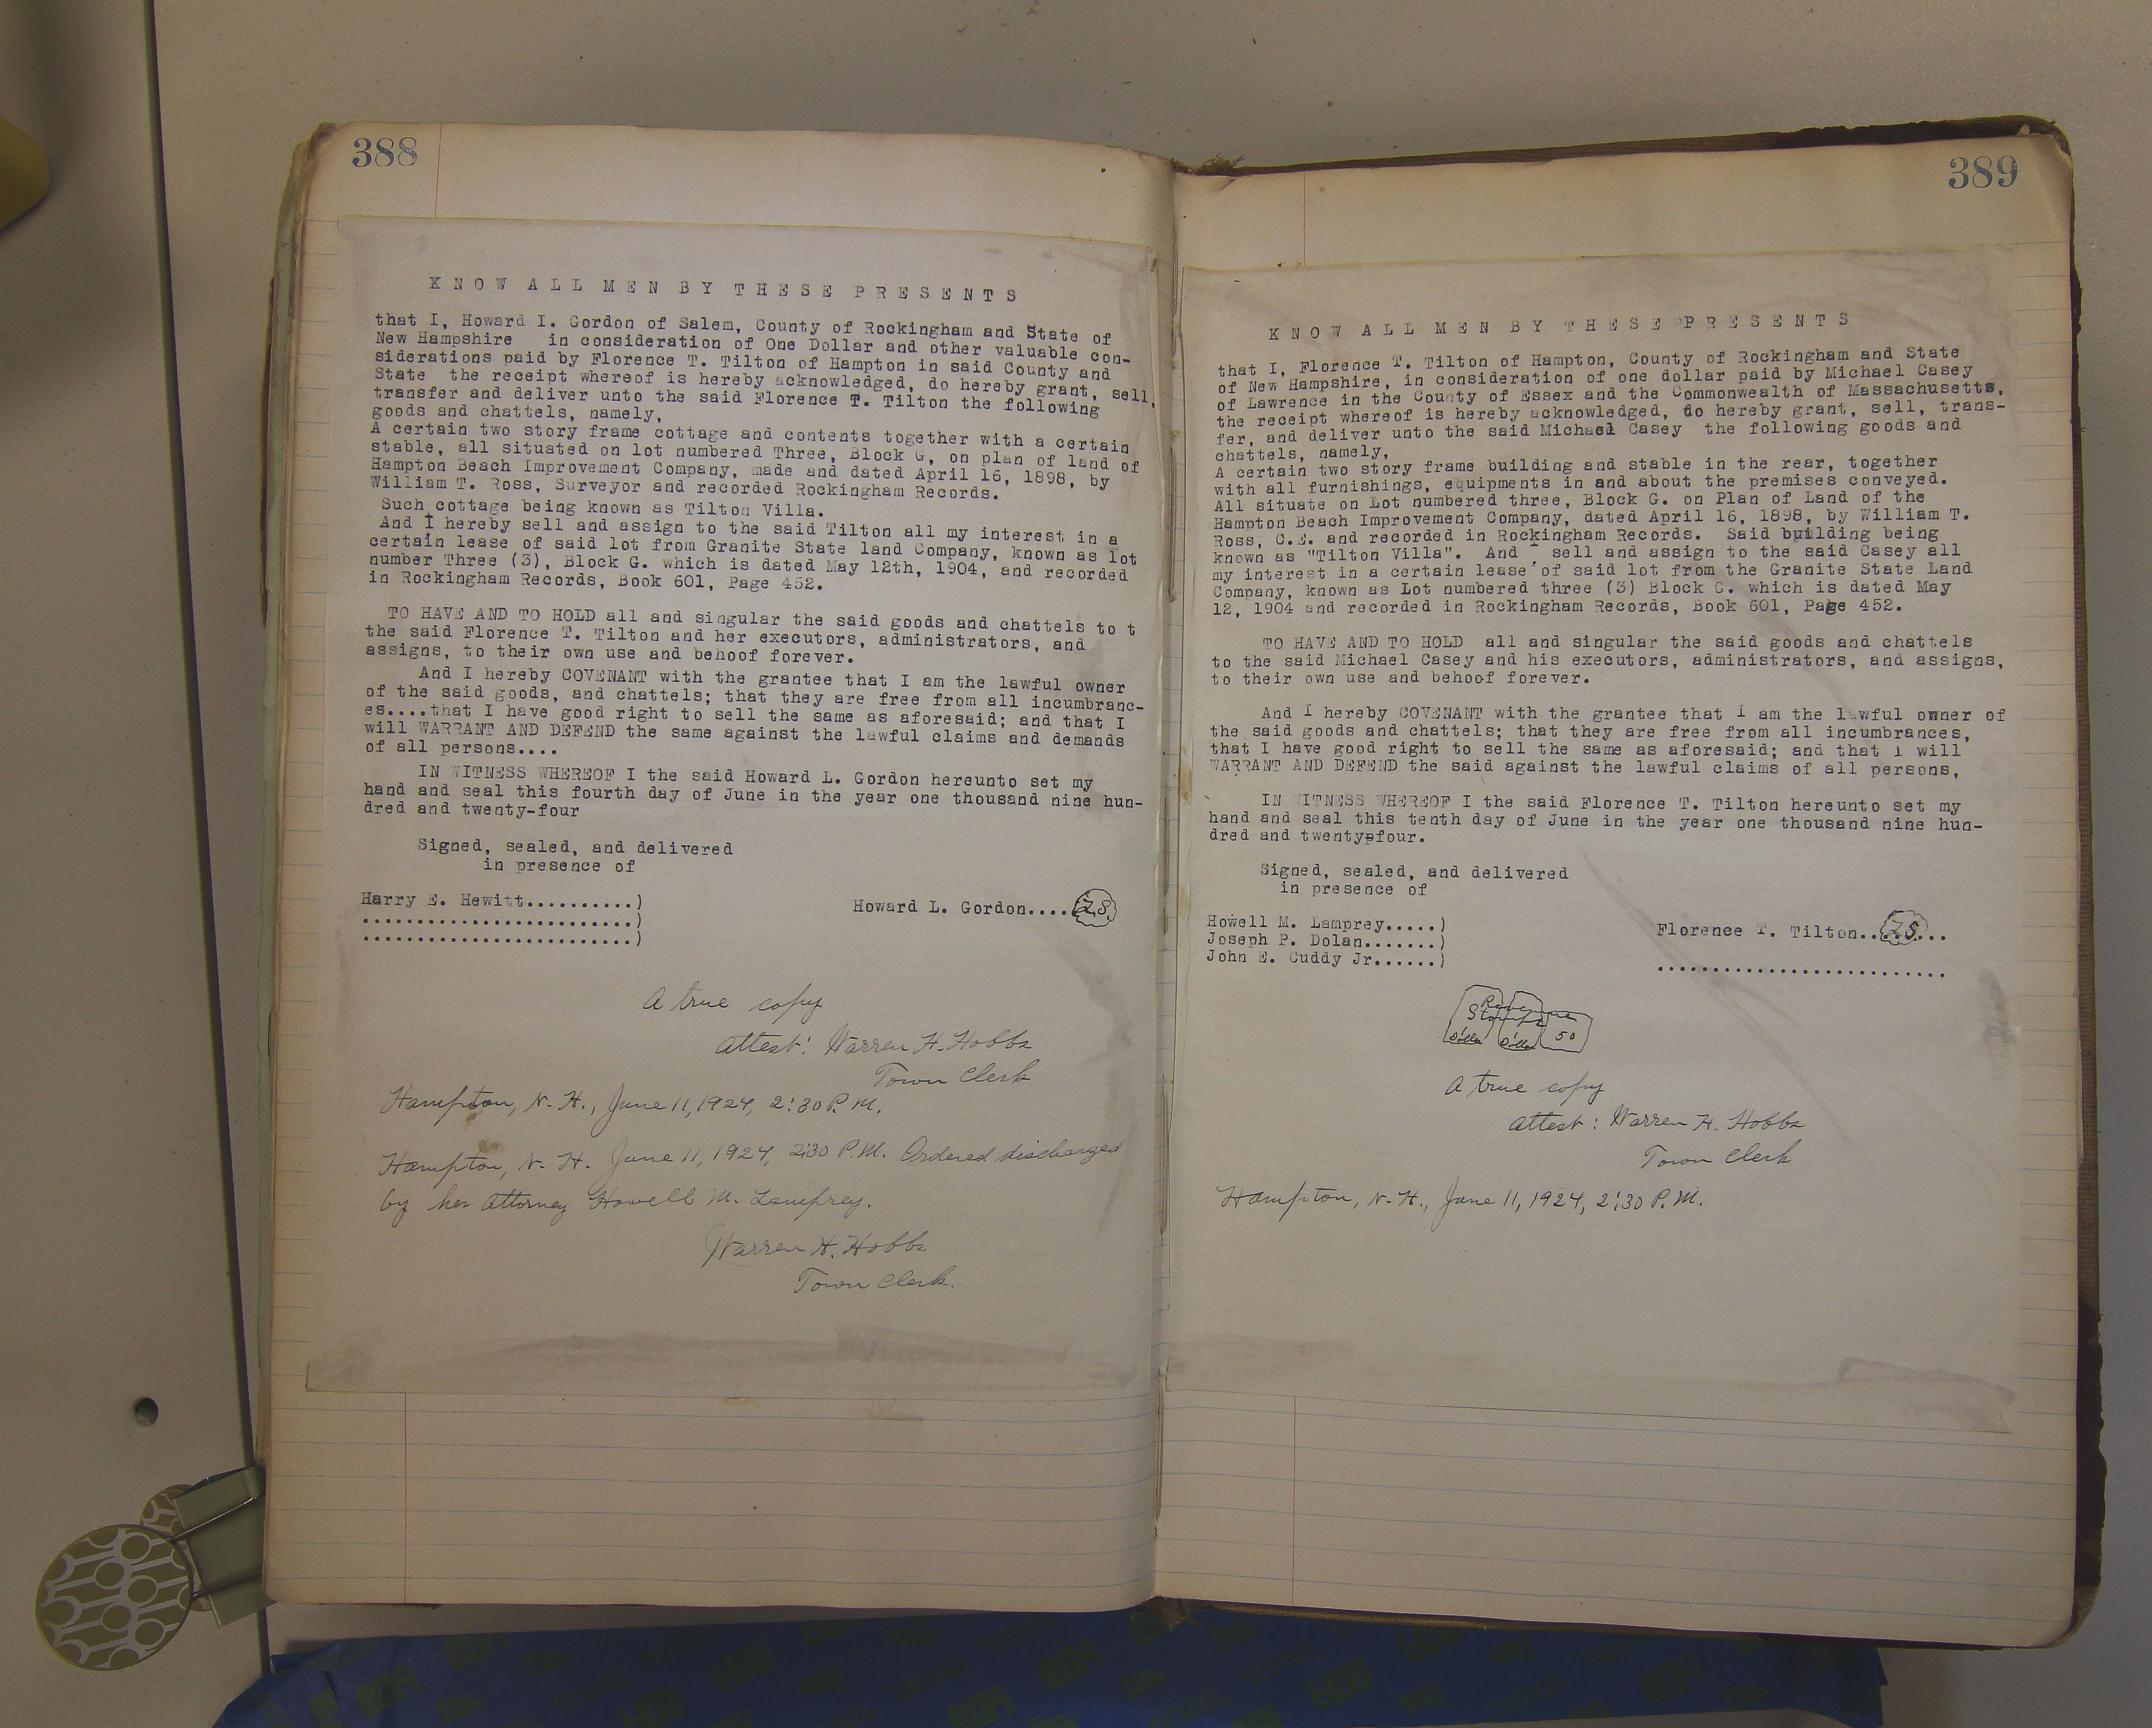 388
K N O W A L L M E N B Y T H E S E P R E S E N T S
that I, Howard I. Gordon of Salem, County of Rockingham and State of
New Hampshire in consideration of One Dollar and other valuable con-
siderations paid by Florence T. Tilton of Hampton in said County and
State the receipt whereof is hereby acknowledged, do hereby grant, sell,
transfer and deliver unto the said Florence T. Tilton the following
goods and chattels, namely,
A certain two story frame cottage and contents together with a certain
stable, all situated on lot numbered Three, Block G, on plan of land of
Hampton Beach Improvement Company, made and dated April 16, 1898, by
William T. Ross, Surveyor and recorded Rockingham Records.
Such cottage being known as Tilton Villa.
And I hereby sell and assign to the said Tilton all my interest in a
certain lease of said lot from Granite State land Company, known as lot
number Three (3), Block G. which is dated May 12th, 1904, and recorded
in Rockingham Records, Book 601, Page 452.
TO HAVE AND TO HOLD all and singular the said goods and chattels to t
the said Florence T. Tilton and her executors, administrators, and
assigns, to their own use and behoof forever.
And I hereby COVENANT with the grantee that I am the lawful owner
of the said goods, and chattels; that they are free from all incumbranc-
es....that I have good right to sell the same as aforesaid; and that I
will WARRANT AND DEFEND the same against the lawful claims and demands
of all persons....
IN WITNESS WHEREOF I the said Howard L. Gordon hereunto set my
hand and seal this fourth day of June in the year one thousand nine hun-
dred and twenty-four
Signed, sealed, and delivered
in presence of
Harry E. Hewitt..........)
.........................)
.........................)
Howard L. Gordon....
A true copy
Attest: Warren H. Hobbs
Town Clerk
Hampton, N. H., June 11, 1924, 2:30 P.M.
Hampton, N. H. June 11, 1924, 2:30 P.M. Ordered discharged
by her Attorney Howell M. Lamprey.
Warren H. Hobbs
Town Clerk.
389
K N O W A L L M E N B Y T H E S E P R E S E N T S
that I, Florence T. Tilton of Hampton, County of Rockingham and State
of New Hampshire, in consideration of one dollar paid by Michael Casey
of Lawrence in the County of Essex and the Commonwealth of Massachusetts,
the receipt whereof is hereby acknowledged, do hereby grant, sell, trans-
fer, and deliver unto the said Michael Casey the following goods and
chattels, namely,
A certain two story frame building and stable in the rear, together
with all furnishings, equipments in and about the premises conveyed.
All situate on Lot numbered three, Block G. on Plan of Land of the
Hampton Beach Improvement Company, dated April 16, 1898, by William T.
Ross, C.E. and recorded in Rockingham Records. Said building being
known as "Tilton Villa". And sell and assign to the said Casey all
my interest in a certain lease of said lot from the Granite State Land
Company, known as Lot numbered three (3) Block G. which is dated May
12, 1904 and recorded in Rockingham Records, Book 601, Page 452.
TO HAVE AND TO HOLD all and singular the said goods and chattels
to the said Michael Casey and his executors, administrators, and assigns,
to their own use and behoof forever.
And I hereby COVENANT with the grantee that I am the lawful owner of
the said goods and chattels; that they are free from all incumbrances,
that I have good right to sell the same as aforesaid; and that I will
WARRANT AND DEFEND the said against the lawful claims of all persons,
IN WITNESS WHEREOF I the said Florence T. Tilton hereunto set my
hand and seal this tenth day of June in the year one thousand nine hun-
dred and twenty-four.
Signed, sealed, and delivered
in presence of
Howell M. Lamprey.....)
Joseph P. Dolan.......)
John E. Cuddy Jr......)
Florence T. Tilton.......
..........................
Revenue
Stamps
Dollar Dollar 50
A true copy
Attest: Warren H. Hobbs
Town Clerk
Hampton, N. H., June 11, 1924, 2:30 P.M.